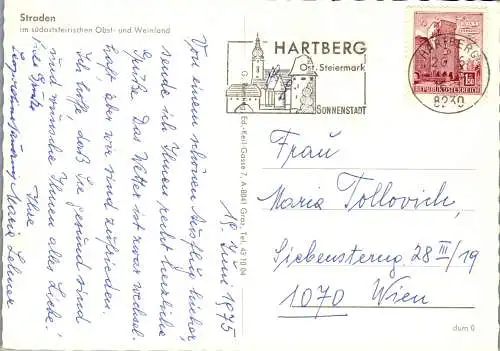 Straden
im südoststeirischen Obst- und Weinland
HARTBERG
Ost-Steiermark
SONNENSTADT
HARTBERG
8230
1.50
REPUBLIK ÖSTERREICH
Ed.-Keil-Gasse 7, A-8041 Graz, Tel. 43 10 04
19. Juni 1975
Von einem schönen Ausflug hierher,
sende ich Ihnen recht herzliche
Grüße. Das Wetter ist zwar wechsel-
haft aber wir sind zufrieden.
Ich hoffe daß Sie gesund sind
und wünsche Ihnen alles Liebe!
Ihre
Maria Lehner
Viele Grüße
Frau
Maria Tollovich,
Siebensterng 28 II/19
1070 Wien
dum 0